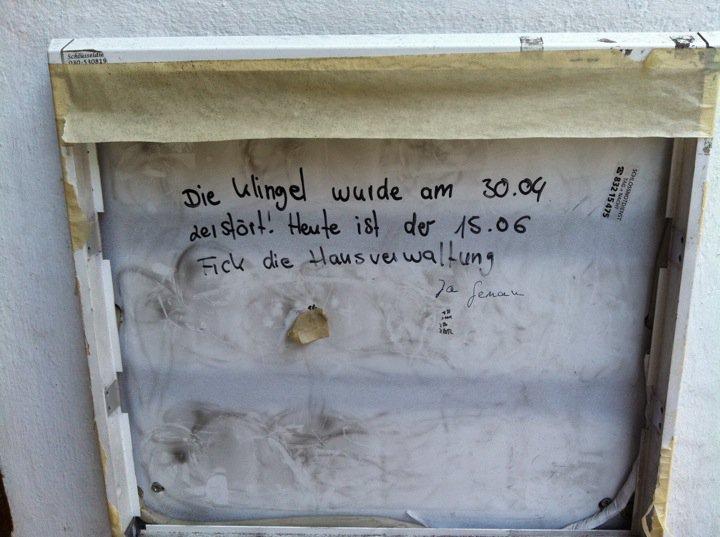 Schlüsseldie
030-530819
SCHLOSSNOTDIENST
TAG + NACHT
☎ 832 15 475
Die Klingel wurde am 30.04
zerstört! Heute ist der 15.06
Fick die Hausverwaltung
Ja genau